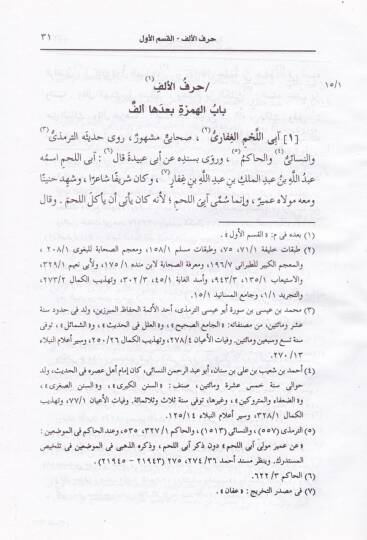 حرف الألف - القسم الأول
٣١
١٥/١
/حرفُ الألفِ(١)
بابُ الهمزةِ بعدَها ألفٌ
[١] آبِى اللَّحْمِ الغِفارىُّ(٢)، صحابىٌّ مشهورٌ، روى حديثَه الترمذىُّ(٣)
والنسائىُّ(٤) والحاكمُ(٥)، وروَى بسندِه عن أبى عبيدةَ قال(٦): آبى اللحمِ اسمُه
عبدُ اللَّهِ بنُ عبدِ الملكِ بنِ عبدِ اللَّهِ بنِ غِفارٍ(٧)، وكان شريفًا شاعرًا، وشهِد حنينًا
ومعه مولاه عميرٌ، وإنما سُمِّى آبِىَ اللحمِ؛ لأنه كان يأبَى أن يأكلَ اللحمَ. وقال
(١) بعده فى م: «القسم الأول».
(٢) طبقات خليفة ٧١/١، ٧٥، وطبقات مسلم ١٥٨/١، ومعجم الصحابة للبغوى ٢٠٨/١،
والمعجم الكبير للطبرانى ١٩٦/٧، ومعرفة الصحابة لابن منده ١٧٥/١، ولأبى نعيم ٣٢٩/١،
والاستيعاب ١٣٥/١، ٩٤٣/٣، وأسد الغابة ٤٥/١، ٣٠٢/٣، وتهذيب الكمال ٢٧٣/٢،
والتجريد ١/١، وجامع المسانيد ١٥/١.
(٣) محمد بن عيسى بن سورة أبو عيسى الترمذى، أحد الأئمة الحفاظ المبرزين، ولد فى حدود سنة
عشر ومائتين، من مصنفاته: «الجامع الصحيح»، و«العلل فى الحديث»، و«الشمائل»، توفى
سنة تسع وسبعين ومائتين. وفيات الأعيان ٢٧٨/٤، وتهذيب الكمال ٢٥٠/٢٦، وسير أعلام النبلاء
٢٧٠/١٣.
(٤) أحمد بن شعيب بن على بن سنان، أبو عبد الرحمن النسائى، كان إمام أهل عصره فى الحديث، ولد
حوالى سنة خمس عشرة ومائتين، صنف: «السنن الكبرى»، و«السنن الصغرى»،
و«الضعفاء والمتروكين»، وغيرها، توفى سنة ثلاث وثلاثمائة. وفيات الأعيان ٧٧/١، وتهذيب
الكمال ٣٢٨/١، وسير أعلام النبلاء ١٢٥/١٤.
(٥) الترمذى (٥٥٧)، والنسائى (١٥١٣)، والحاكم ٣٢٧/١، ٥٣٥، وعند الحاكم فى الموضعين:
«عن عمير مولى آبى اللحم» دون ذكر آبى اللحم، وذكره الذهبى فى الموضعين فى تلخيص
المستدرك. وينظر مسند أحمد ٢٧٤/٣٦، ٢٧٥ (٢١٩٤٣ - ٢١٩٤٥).
(٦) الحاكم ٦٢٢/٣.
(٧) فى مصدر التخريج: «عفان».